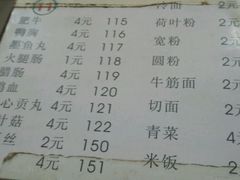 肥牛 4元 115
鸭胸 4元 116
墨鱼丸 4元 117
火腿肠 1元 118
腊肠 4元 119
鸭血 4元 120
心贡丸 4元 121
针菇 4元 122
丝 2元 150
4元 151
冷面 2
荷叶粉 2元
宽粉 2元
圆粉 2元
牛筋面 2元
切面 2元
青菜 2元
米饭 2